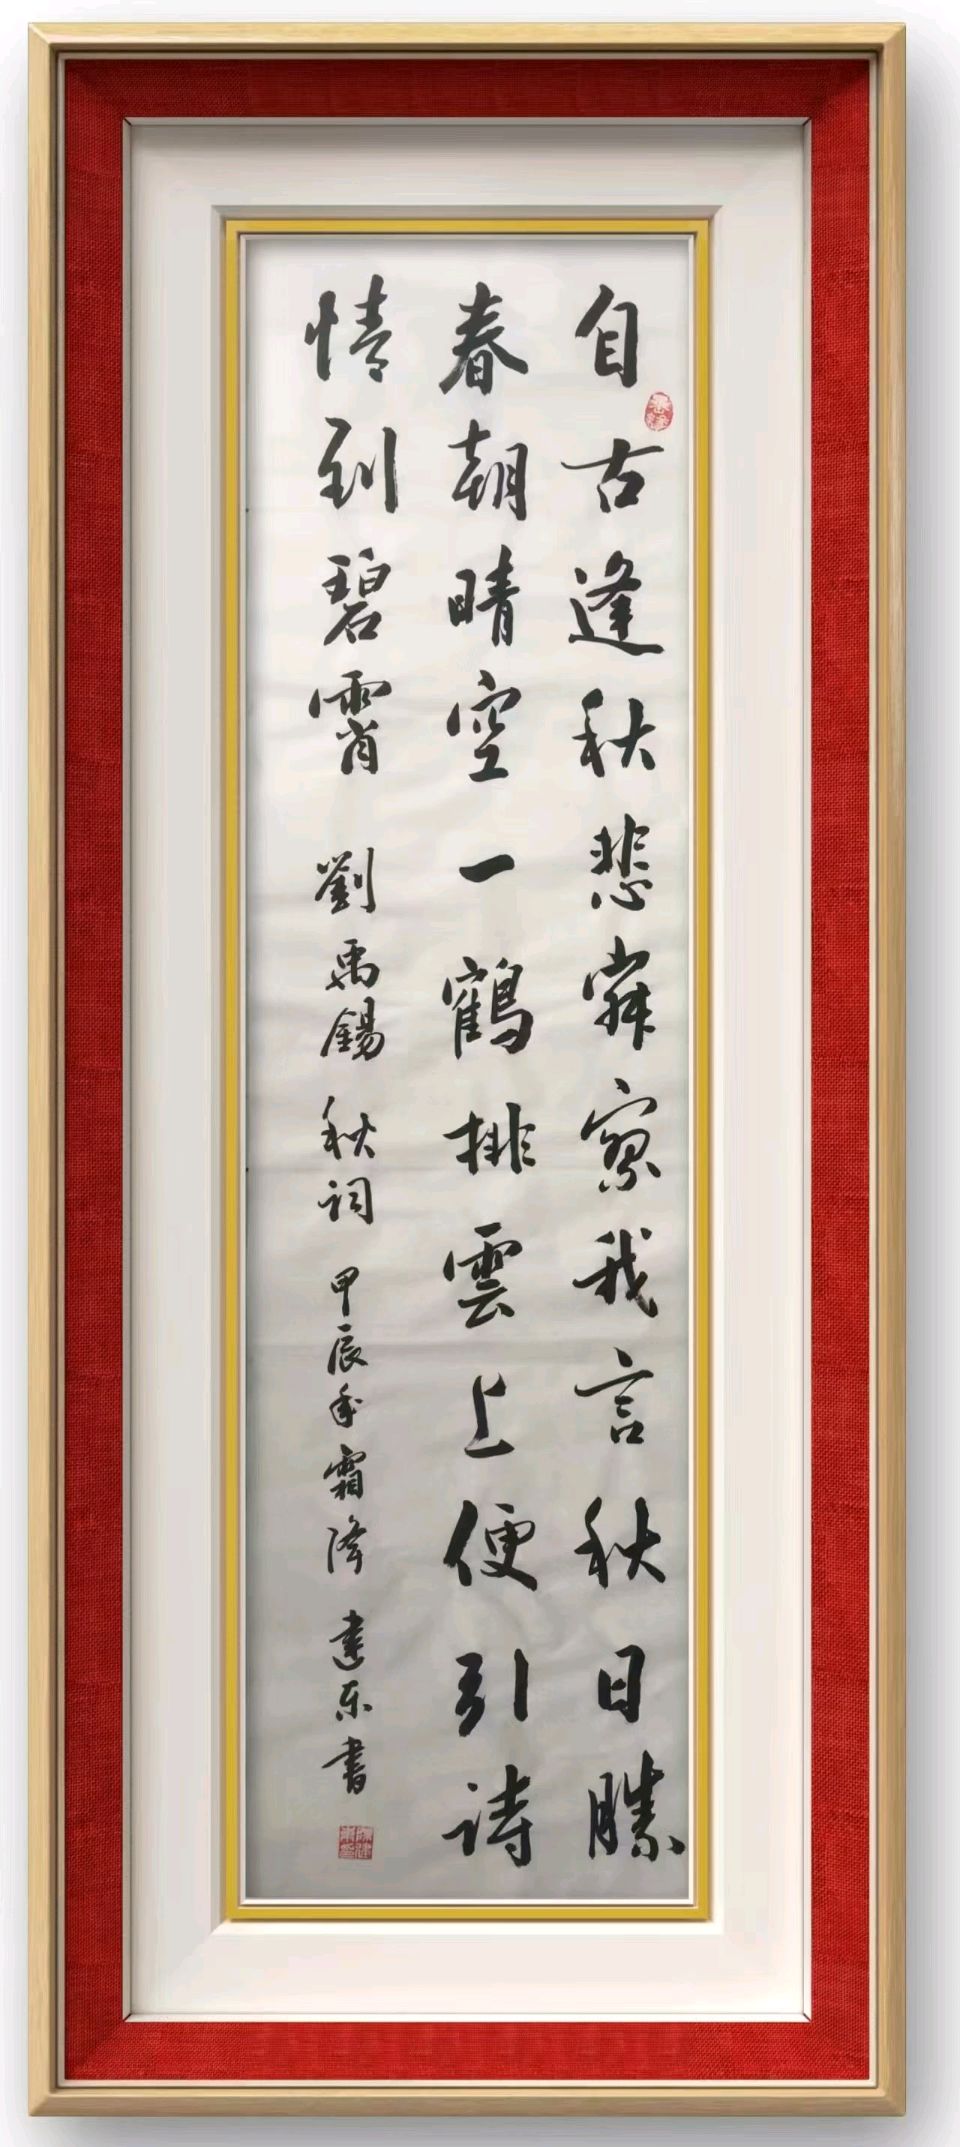 自古逢秋悲寂寥我言秋日勝
春朝晴空一鶴排雲上便引詩
情到碧霄 劉禹錫 秋詞 甲辰年霜降 建东書